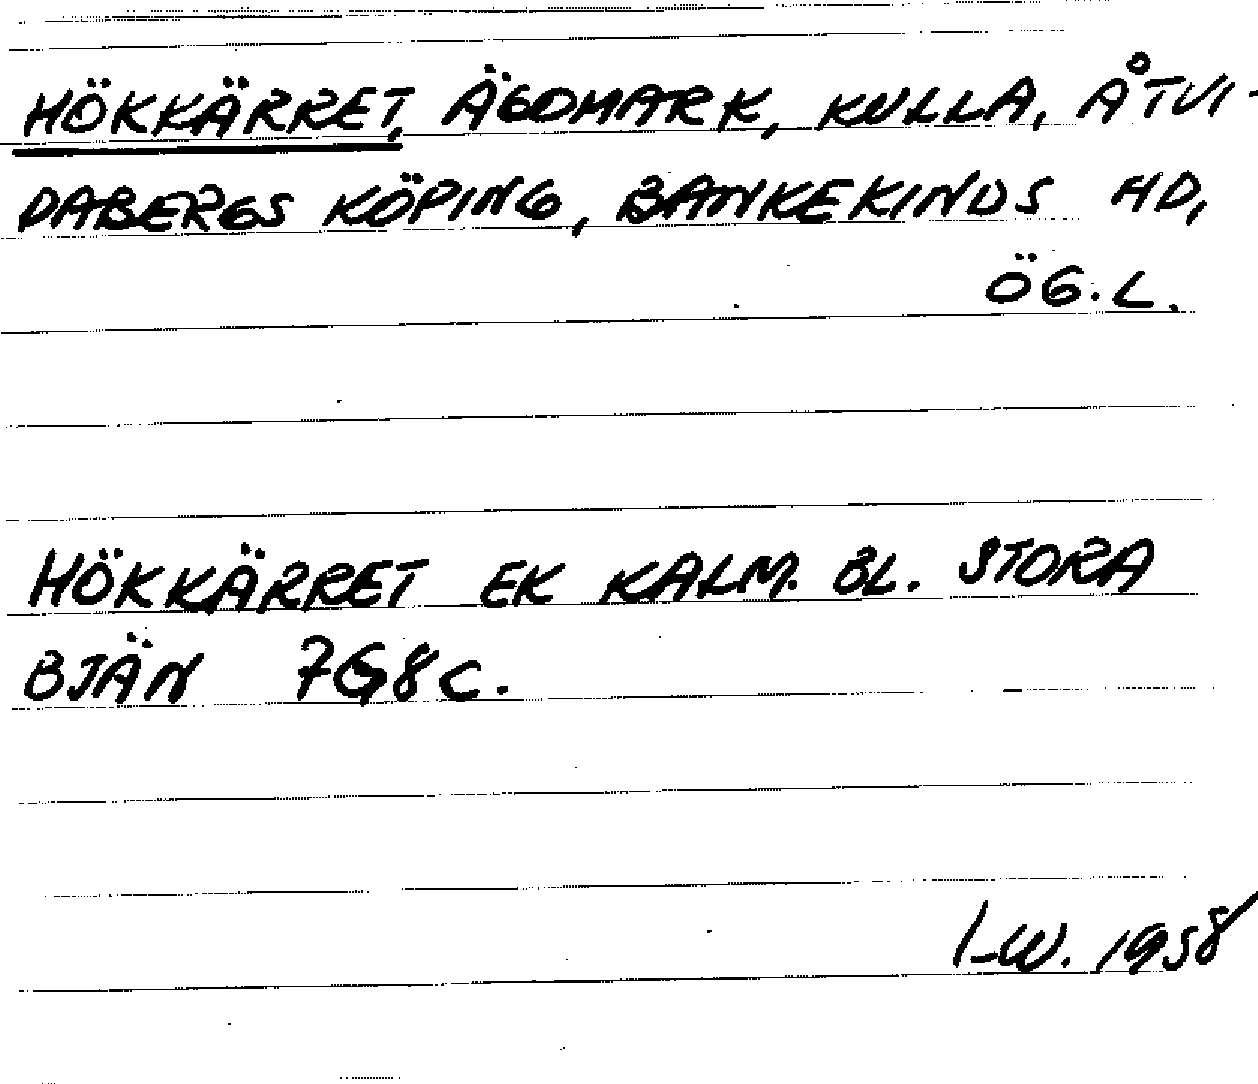 HÖKKÄRRET, ÄGOMARK, KULLA, ÅTVI-
DABERGS KÖPING, BANKEKINDS HD,
ÖG. L.
HÖKKÄRRET EK KALM. BL. STORA
BJÄN 7G8c.
I-W. 1958